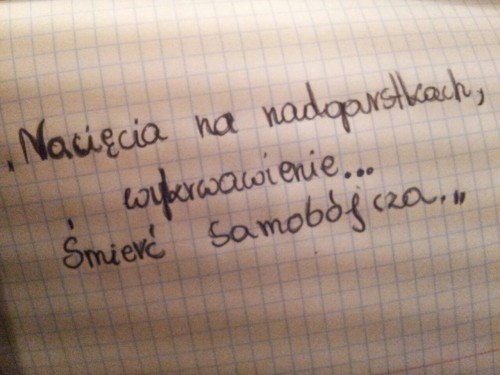 „Nacięcia na nadgarstkach,
wykrwawienie...
Śmierć samobójcza.”